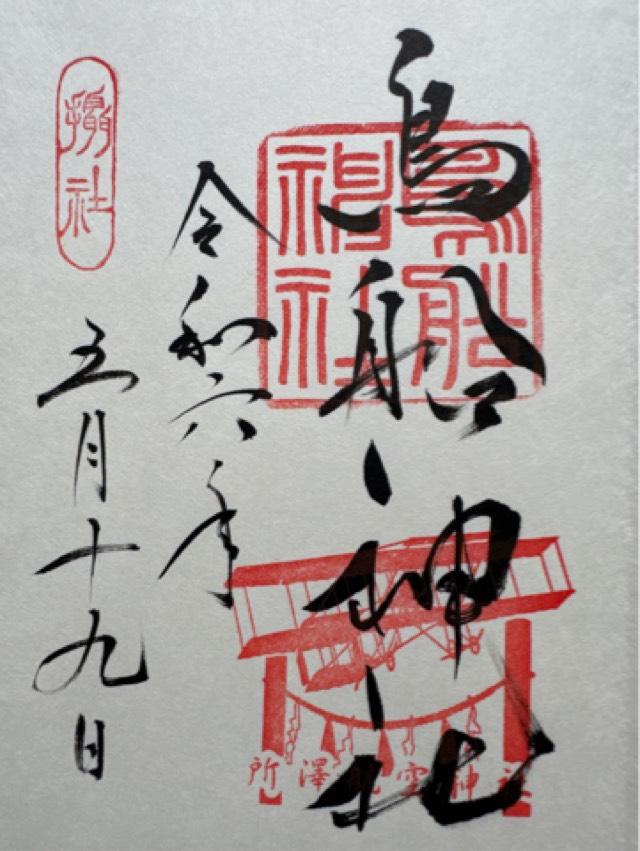 鳥船神社
鳥船神社
所澤航空神社
令和六年
五月十九日
攝社